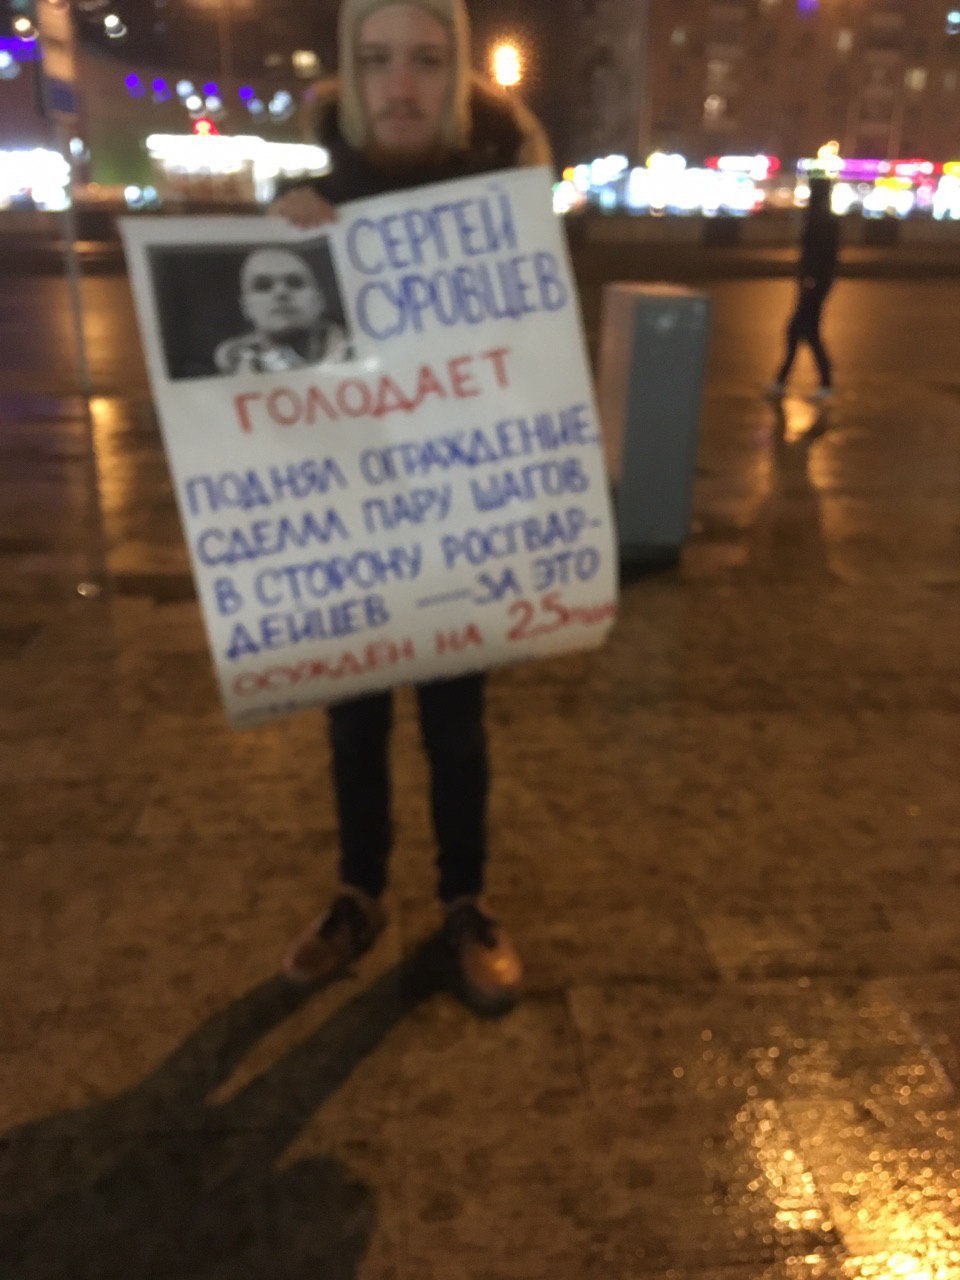 СЕРГЕЙ
СУРОВЦЕВ
ГОЛОДАЕТ
ПОДНЯЛ ОГРАЖДЕНИЕ,
СДЕЛАЛ ПАРУ ШАГОВ
В СТОРОНУ РОСГВАР-
ДЕЙЦЕВ — ЗА ЭТО
ОСУЖДЁН НА 2.5